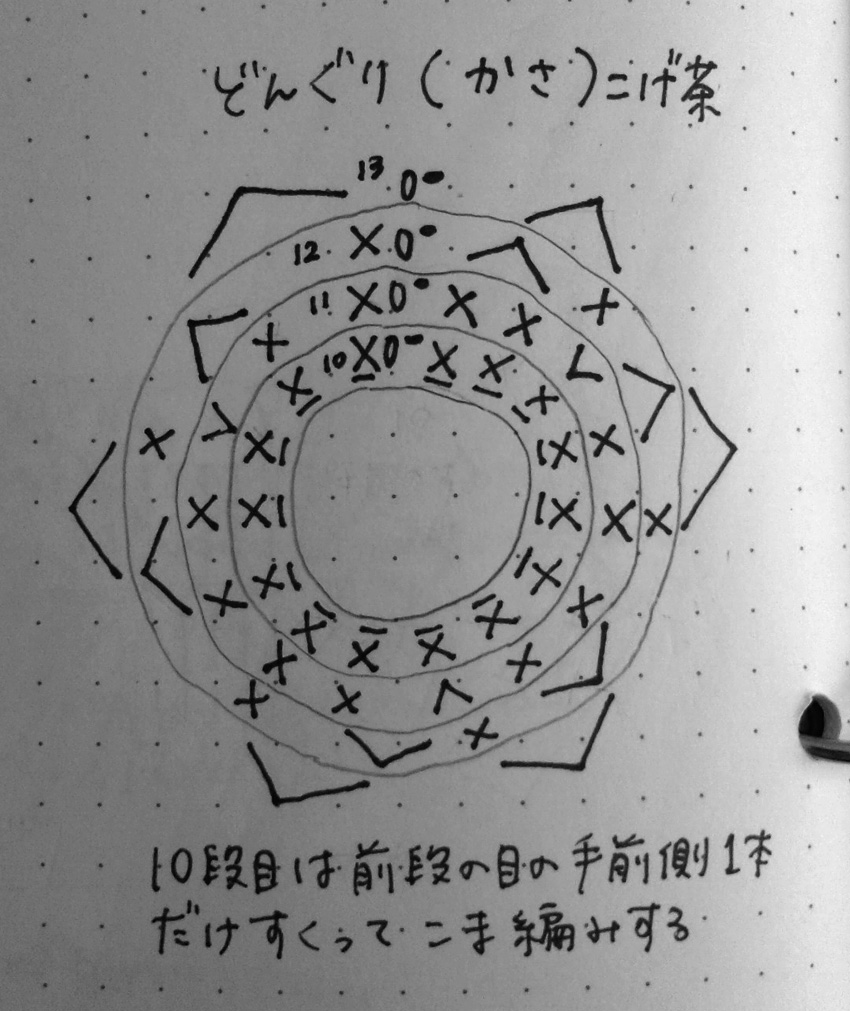 どんぐり(かさ)こげ茶
13 0
12 X0
11 X0 X X X
10 X0 X X X
10段目は前段の目の手前側1本
だけすくってこま編みする